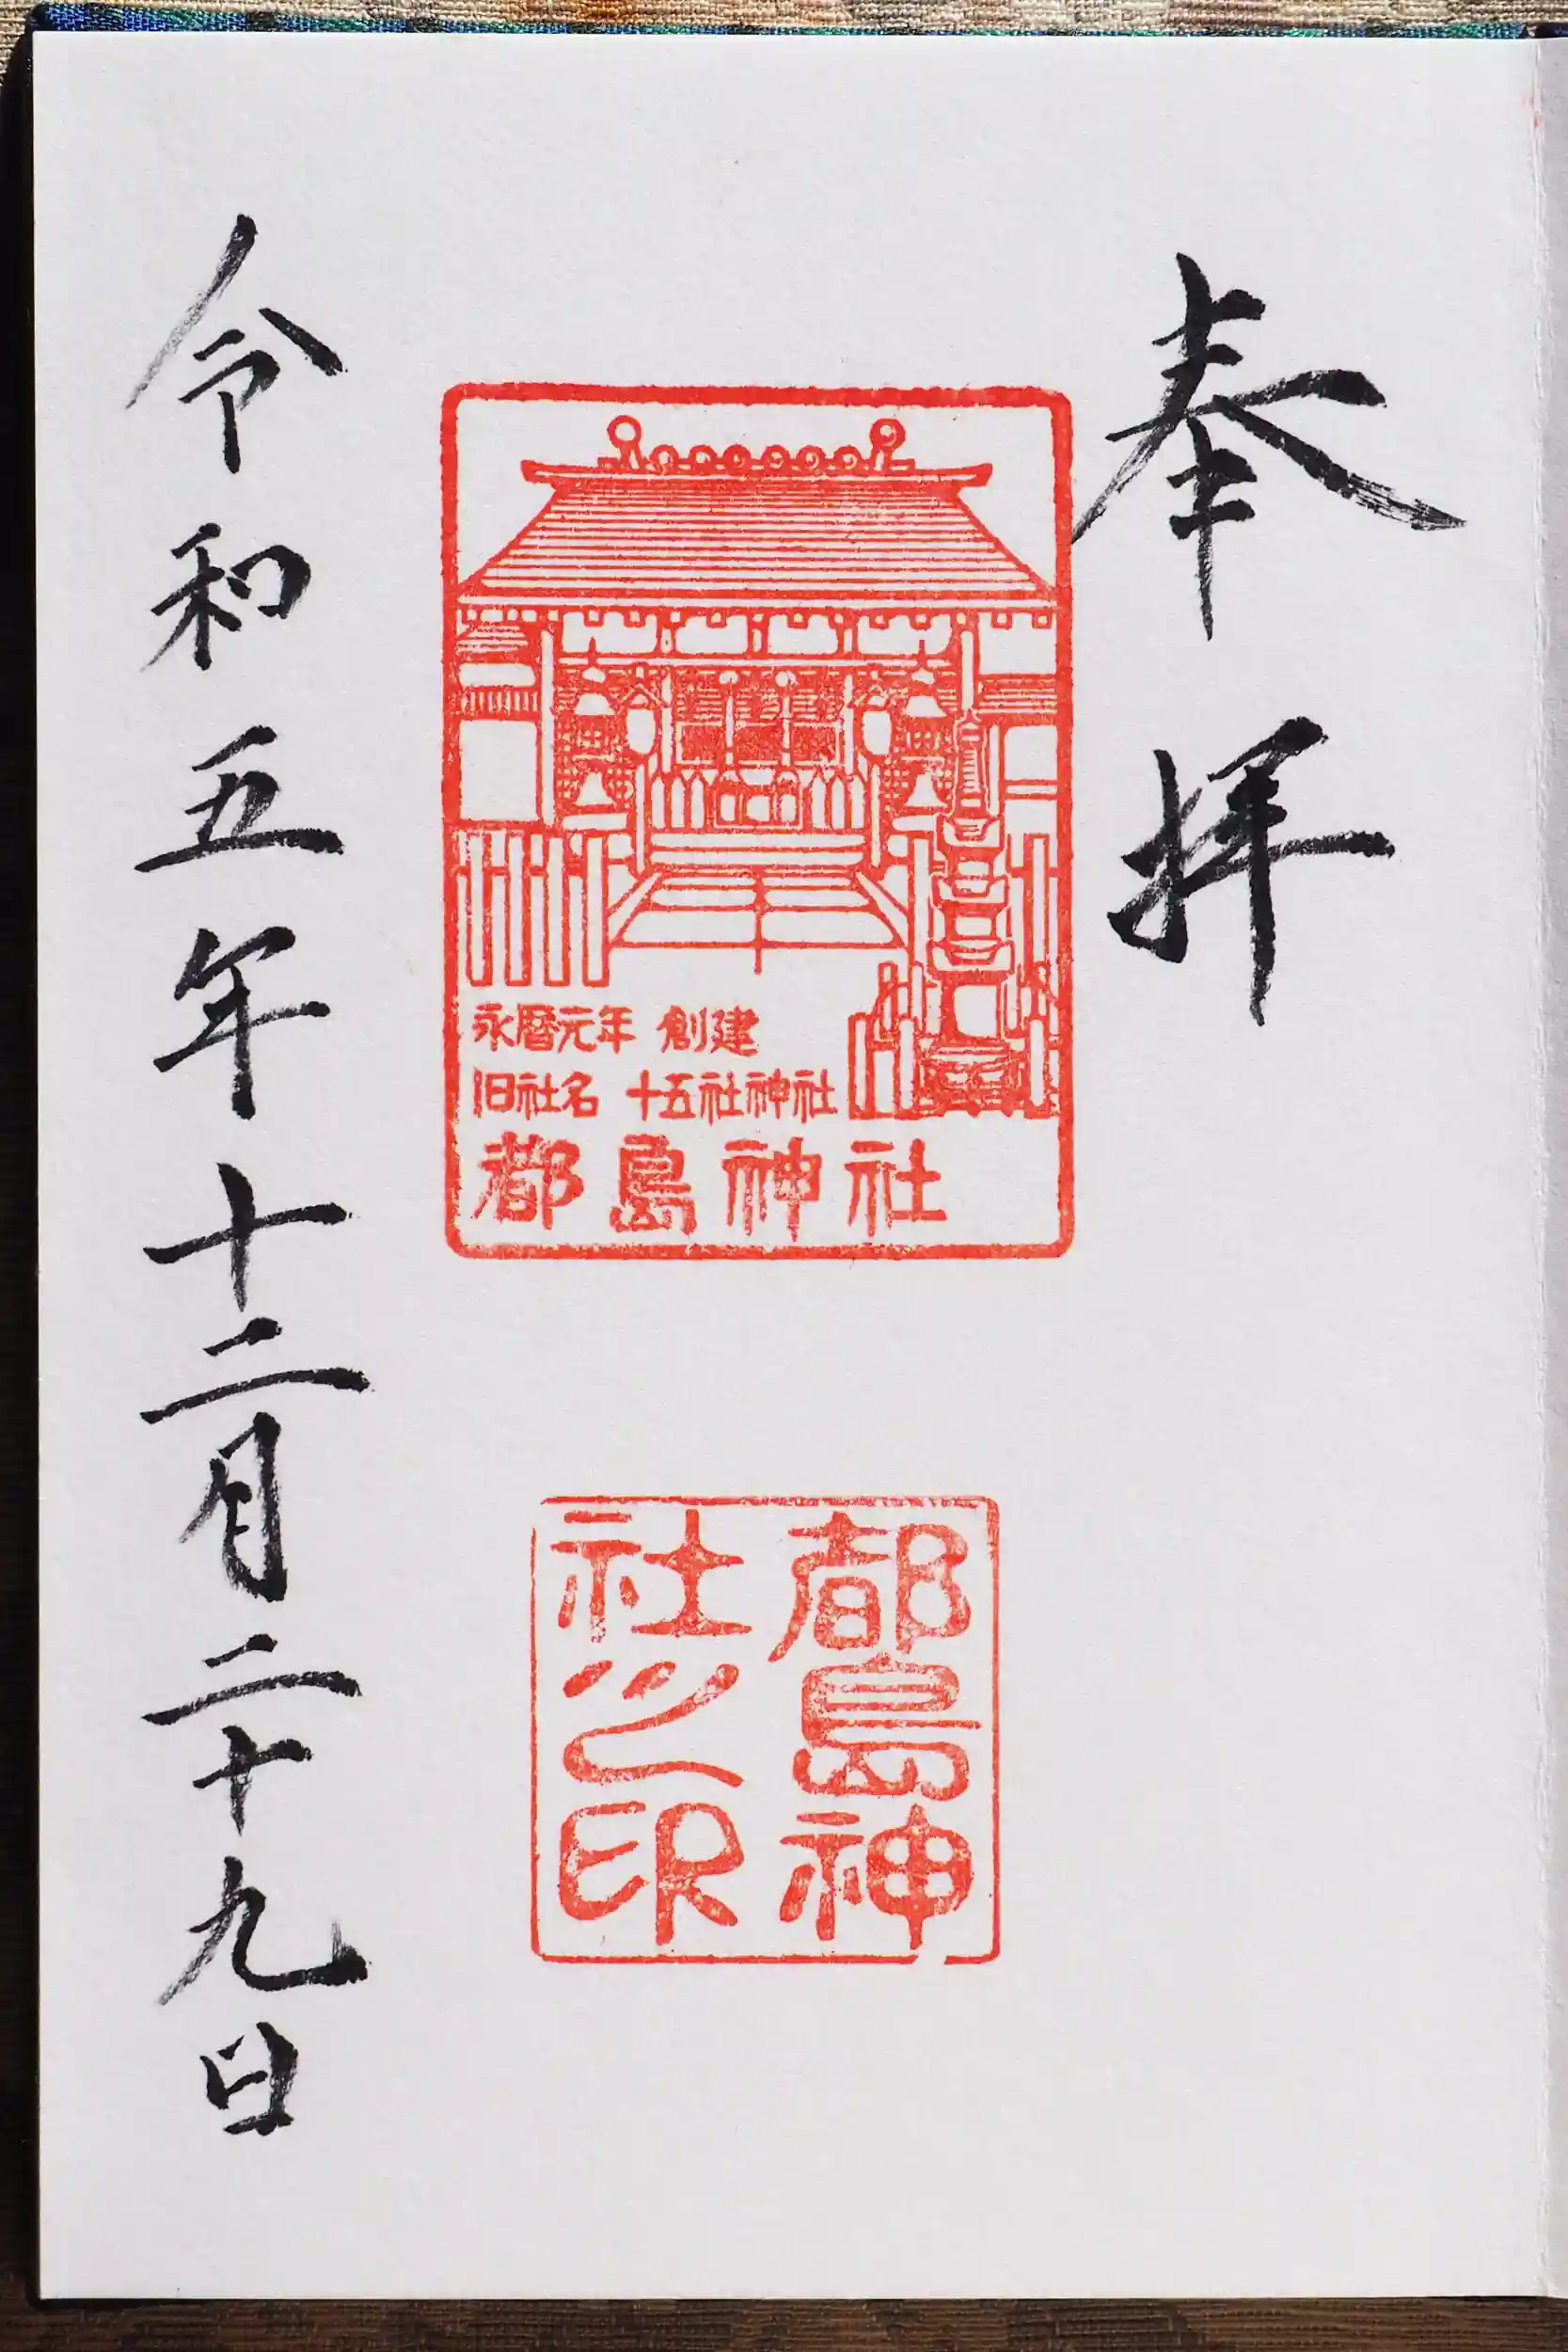 奉拝
永暦元年 創建
旧社名 十五社神社
都島神社
都島神
社之印
令和五年十二月二十九日